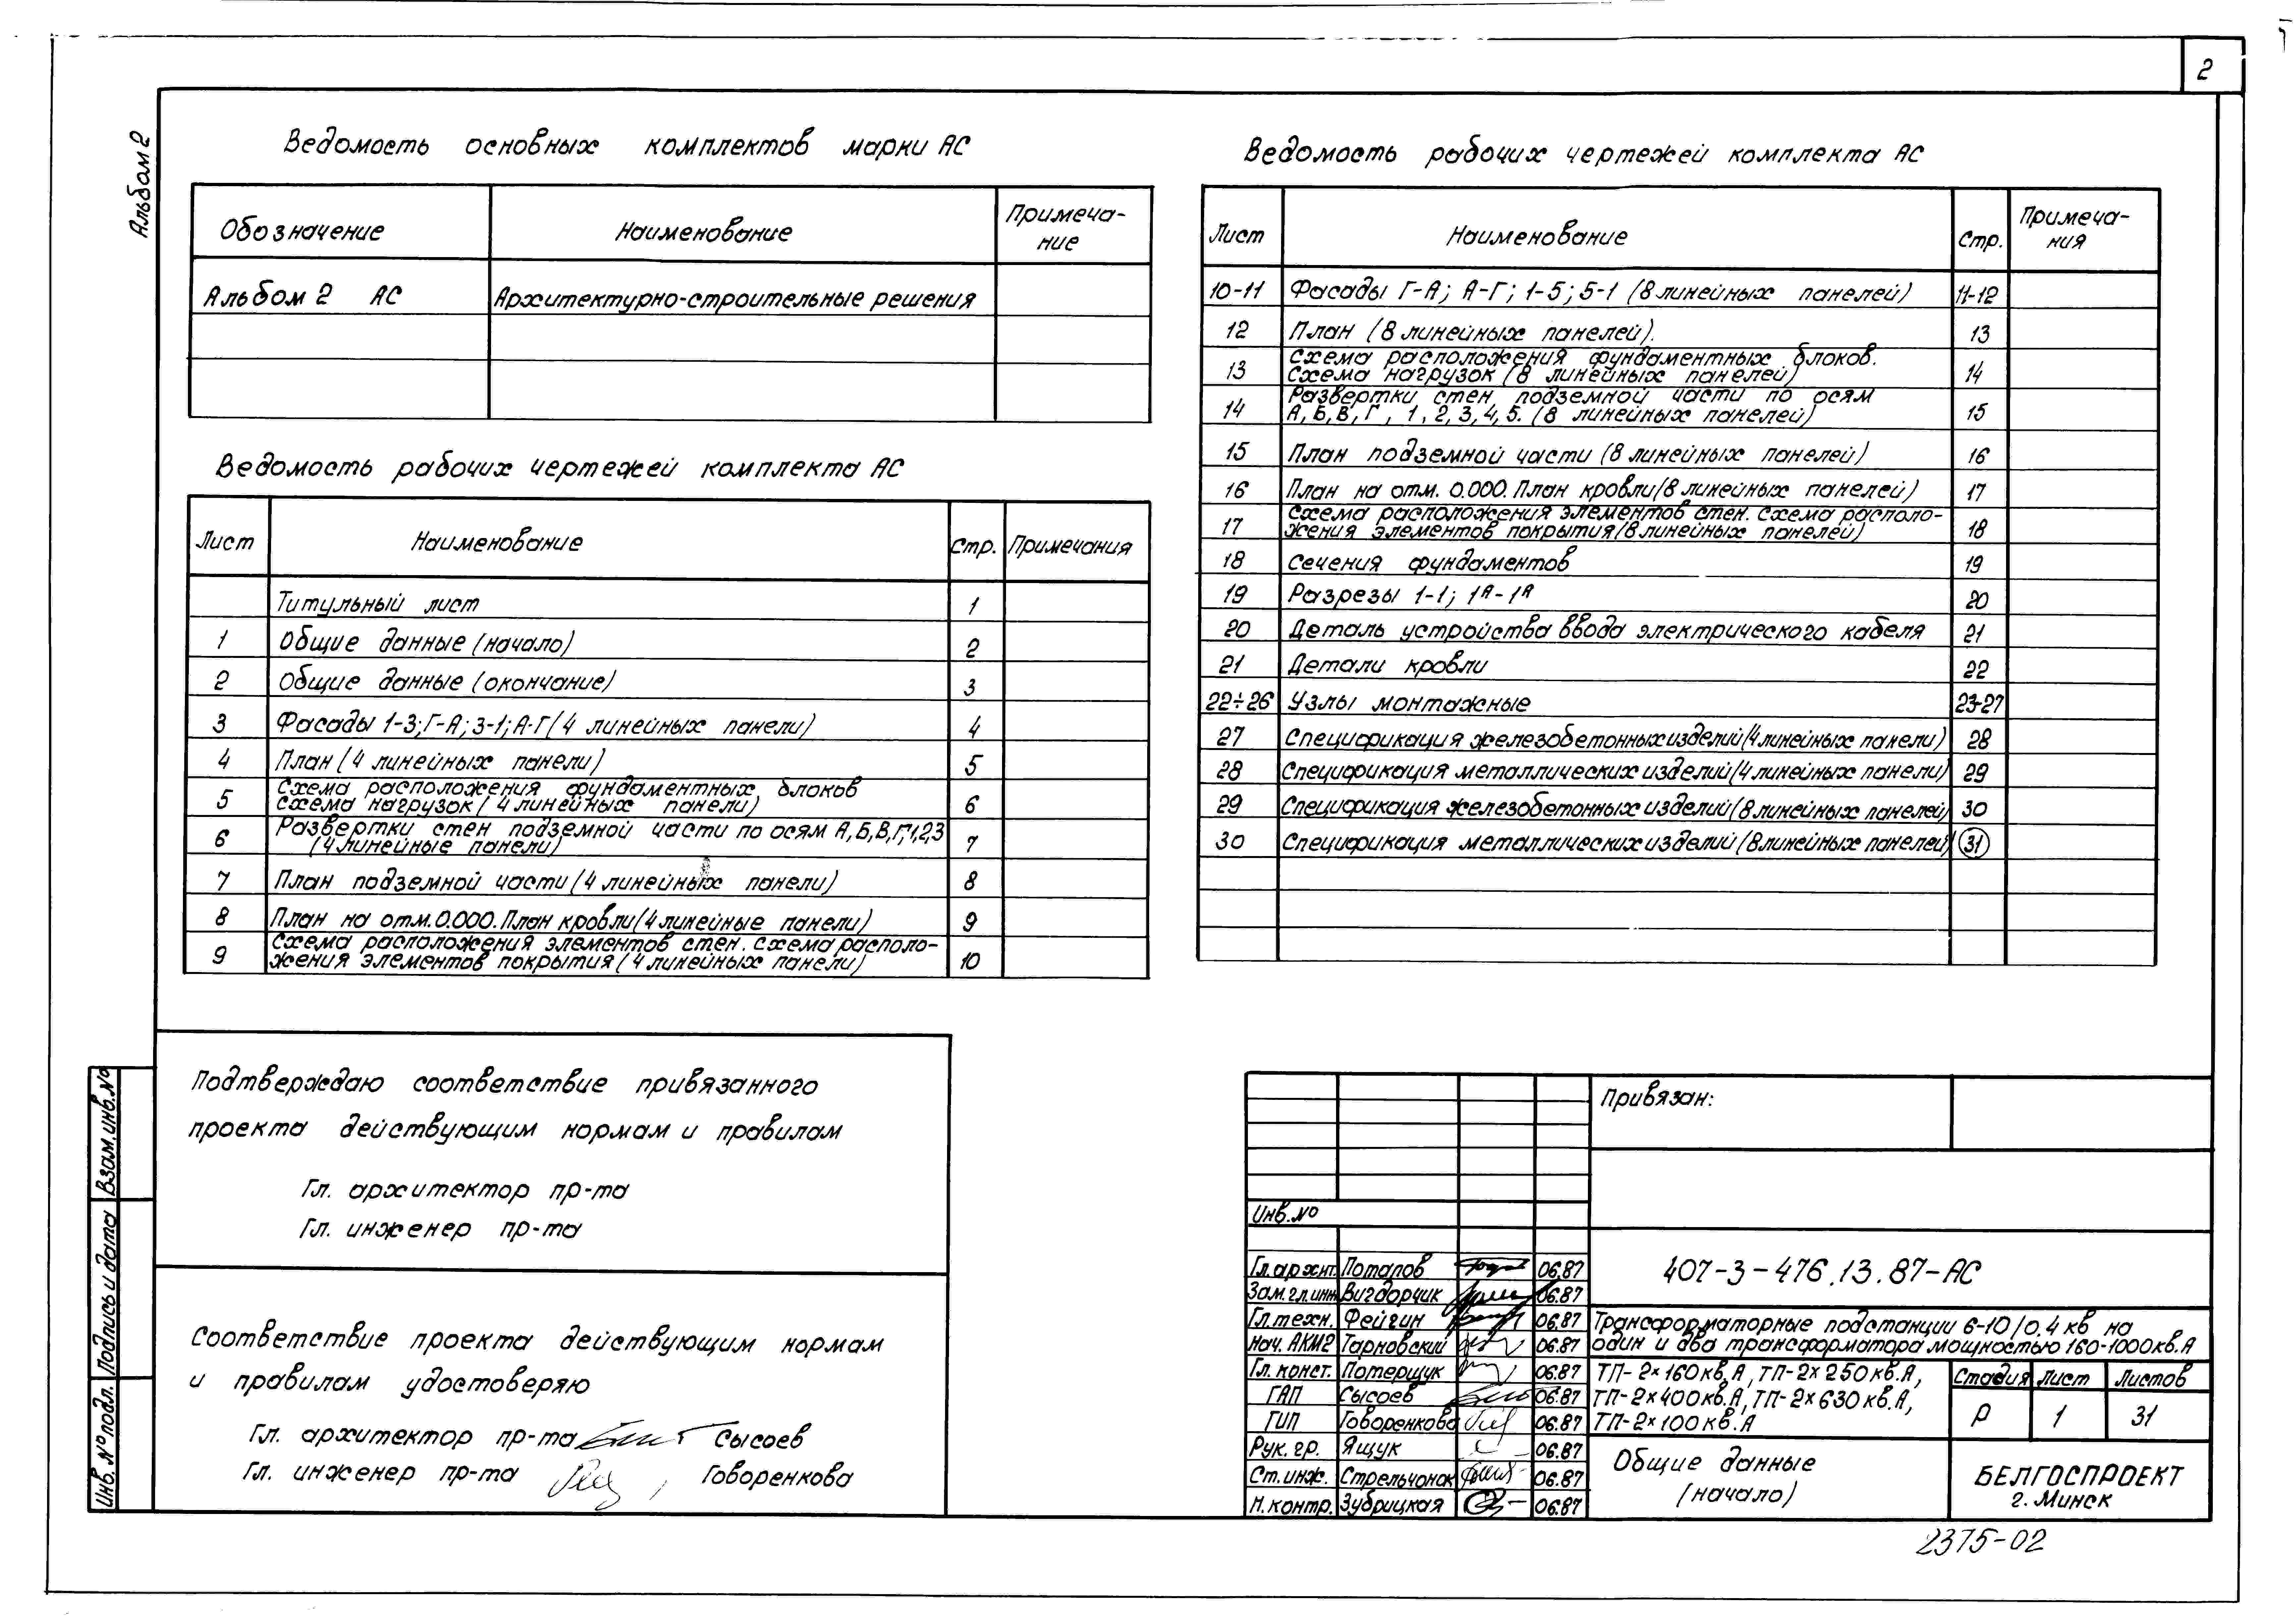 2
Альбом 2
Ведомость основных комплектов марки АС
Обозначение Наименование Примеча-
ние
Альбом 2 АС Архитектурно-строительные решения
Ведомость рабочих чертежей комплекта АС
Лист Наименование Стр. Примечания
Титульный лист 1
1 Общие данные (начало) 2
2 Общие данные (окончание) 3
3 Фасады 1-3; Г-А; 3-1; А-Г (4 линейных панели) 4
4 План (4 линейных панели) 5
5 Схема расположения фундаментных блоков
схема нагрузок (4 линейных панели) 6
6 Развертки стен подземной части по осям А,Б,В,Г,1,2,3
(4 линейные панели) 7
7 План подземной части (4 линейных панели) 8
8 План на отм. 0.000. План кровли (4 линейные панели) 9
9 Схема расположения элементов стен. Схема располо-
жения элементов покрытия (4 линейных панели) 10
Ведомость рабочих чертежей комплекта АС
Лист Наименование Стр. Примеча-
ния
10-11 Фасады Г-А; А-Г; 1-5; 5-1 (8 линейных панелей) 11-12
12 План (8 линейных панелей). 13
13 Схема расположения фундаментных блоков.
Схема нагрузок (8 линейных панелей) 14
14 Развертки стен подземной части по осям
А, Б, В, Г, 1, 2, 3, 4, 5. (8 линейных панелей) 15
15 План подземной части (8 линейных панелей) 16
16 План на отм. 0.000. План кровли (8 линейных панелей) 17
17 Схема расположения элементов стен. Схема располо-
жения элементов покрытия (8 линейных панелей) 18
18 Сечения фундаментов 19
19 Разрезы 1-1; 1А-1А 20
20 Деталь устройства ввода электрического кабеля 21
21 Детали кровли 22
22÷26 Узлы монтажные 23-27
27 Спецификация железобетонных изделий (4 линейных панели) 28
28 Спецификация металлических изделий (4 линейных панели) 29
29 Спецификация железобетонных изделий (8 линейных панелей) 30
30 Спецификация металлических изделий (8 линейных панелей) 31
Подтверждаю соответствие привязанного
проекта действующим нормам и правилам
Гл. архитектор пр-та
Гл. инженер пр-та
Соответствие проекта действующим нормам
и правилам удостоверяю
Гл. архитектор пр-та Сысоев
Гл. инженер пр-та Говоренкова
Взам. инв. №
Подпись и дата
Инв. № подл.
Привязан:
Инв. №
Гл. архит. Потапов 06.87
Зам. гл. инж. Вигдорчик 06.87
Гл. техн. Фейгин 06.87
Нач. АКМ2 Тарновский 06.87
Гл. конст. Потерщук 06.87
ГАП Сысоев 06.87
ГИП Говоренкова 06.87
Рук. гр. Ящук 06.87
Ст. инж. Стрельчонок 06.87
Н. контр. Зубрицкая 06.87
407-3-476.13.87-АС
Трансформаторные подстанции 6-10/0.4 кв на
один и два трансформатора мощностью 160-1000 кв.А
ТП-2×160 кв.А, ТП-2×250 кв.А,
ТП-2×400 кв.А, ТП-2×630 кв.А,
ТП-2×100 кв.А
Стадия Лист Листов
Р 1 31
Общие данные
(начало)
БЕЛГОСПРОЕКТ
г. Минск
2375-02